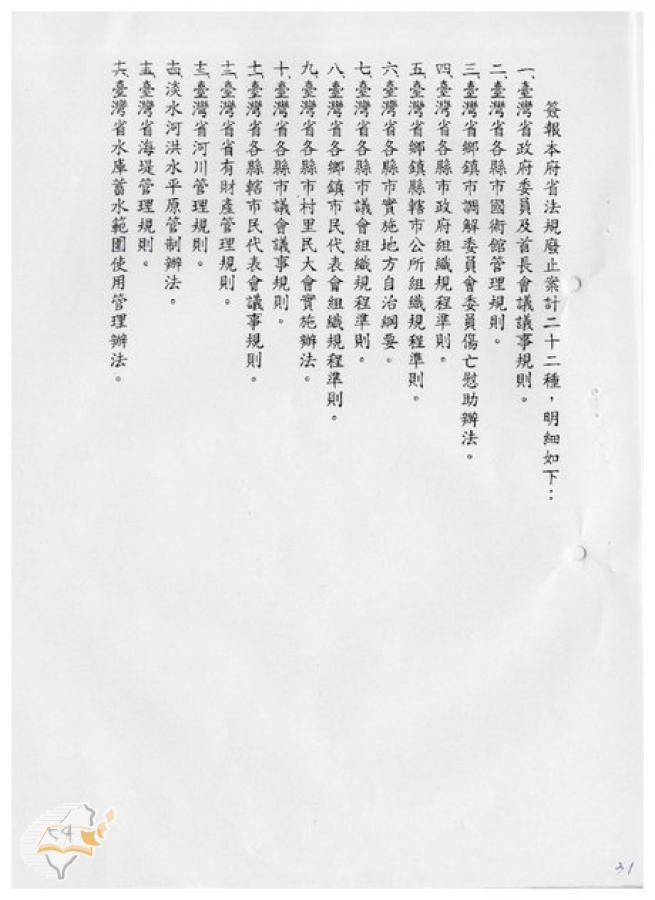 簽報本府省法規廢止案計二十二種，明細如下：
一、臺灣省政府委員及首長會議議事規則。
二、臺灣省各縣市國術館管理規則。
三、臺灣省鄉鎮市調解委員會委員傷亡慰助辦法。
四、臺灣省各縣市政府組織規程準則。
五、臺灣省鄉鎮縣轄市公所組織規程準則。
六、臺灣省各縣市實施地方自治綱要。
七、臺灣省各縣市議會組織規程準則。
八、臺灣省各鄉鎮市民代表會組織規程準則。
九、臺灣省各縣市村里民大會實施辦法。
十、臺灣省各縣市議會議事規則。
十一、臺灣省各縣轄市民代表會議事規則。
十二、臺灣省省有財產管理規則。
十三、臺灣省河川管理規則。
十四、淡水河洪水平原管制辦法。
十五、臺灣省海堤管理規則。
十六、臺灣省水庫蓄水範圍使用管理辦法。
31